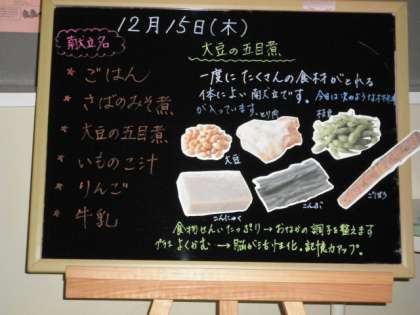 12月15日(木)
献立名
* ごはん
* さばのみそ煮
* 大豆の五目煮
* いものこ汁
* りんご
* 牛乳
大豆の五目煮
一度にたくさんの食材がとれる
体によい献立です。今日は次のような材料
が入っています。
とり肉
枝豆
大豆
ごぼう
こんにゃく
こんぶ
食物せんいたっぷり→おなかの調子を整えます
よくかむ→脳が活性化、記憶力アップ。